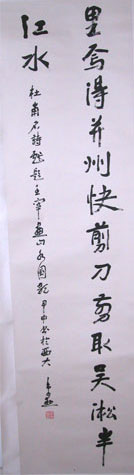 里焉得并州快剪刀剪取吴淞半
江水
杜甫名詩戲題王宰畫山水圖歌 甲申書於西大